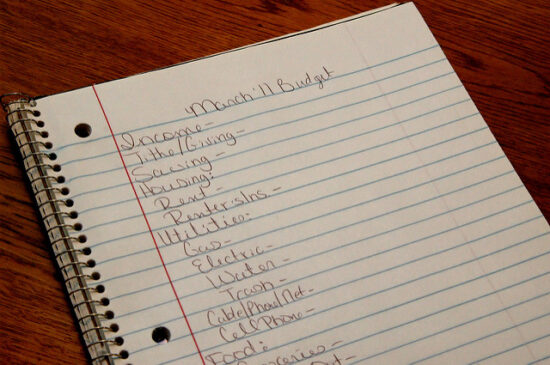 March '11 Budget
Income -
Tithe/Giving -
Saving -
Housing:
Rent -
Renters Ins -
Utilities:
Gas -
Electric -
Water -
Trash -
Cable/Phone/Net -
Cell Phone -
Food:
Groceries -